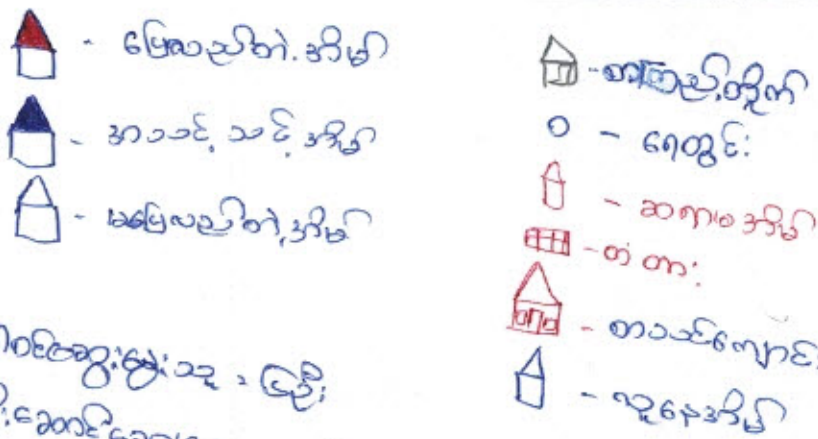 - ပြေလည်တဲ့အိမ်
- အသင့်သင့်အိမ်
- မပြေလည်တဲ့အိမ်
- စာကြည့်တိုက်
- ရေတွင်း
- ဆရာမအိမ်
- တံတား
- စာသင်ကျောင်း
- လူနေအိမ်